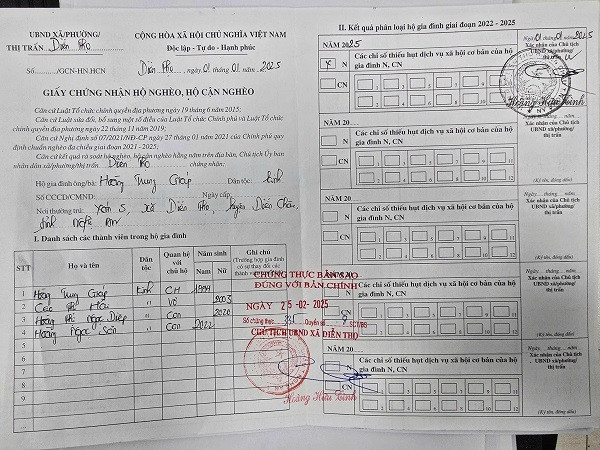 UBND XÃ/PHƯỜNG/
THỊ TRẤN Diễn Thọ
CỘNG HÒA XÃ HỘI CHỦ NGHĨA VIỆT NAM
Độc lập - Tự do - Hạnh phúc
Số........../GCN-HN.HCN
Diễn Thọ, ngày 01 tháng 01 năm 2025
GIẤY CHỨNG NHẬN HỘ NGHÈO, HỘ CẬN NGHÈO
Căn cứ Luật Tổ chức chính quyền địa phương ngày 19 tháng 6 năm 2015;
Căn cứ Luật sửa đổi, bổ sung một số điều của Luật Tổ chức Chính phủ và Luật Tổ chức chính quyền địa phương ngày 22 tháng 11 năm 2019;
Căn cứ Nghị định số 07/2021/NĐ-CP ngày 27 tháng 01 năm 2021 của Chính phủ quy định chuẩn nghèo đa chiều giai đoạn 2021 - 2025;
Căn cứ kết quả rà soát hộ nghèo, hộ cận nghèo hằng năm trên địa bàn, Chủ tịch Ủy ban nhân dân xã/phường/thị trấn Diễn Thọ
Hộ gia đình ông/bà: Hoàng Trung Giáp Dân tộc: Kinh
Số CCCD/CMND: Ngày cấp:
Nơi thường trú: Xóm 5, xã Diễn Thọ, huyện Diễn Châu,
tỉnh Nghệ An
I. Danh sách các thành viên trong hộ gia đình
STT Họ và tên Dân tộc Quan hệ với chủ hộ Năm sinh Nam Nữ Ghi chú
(Trường hợp gia đình có sự thay đổi các thành viên
1 Hoàng Trung Giáp Kinh CH 1994
2 Cao Thị Hậu " Vợ 2003
3 Hoàng Thị Ngọc Diệp " Con 2020
4 Hoàng Ngọc Sơn " Con 2022
5
6
7
8
9
CHỨNG THỰC BẢN SAO
ĐÚNG VỚI BẢN CHÍNH
NGÀY 25-02-2025
Số chứng thực 335 Quyển số SCT/BS
CHỦ TỊCH UBND XÃ DIỄN THỌ
Hoàng Hữu Vinh
II. Kết quả phân loại hộ gia đình giai đoạn 2022 - 2025
NĂM 2025
N
CN
Các chỉ số thiếu hụt dịch vụ xã hội cơ bản của hộ gia đình N, CN
1 2 3 4 5 6
7 8 9 10 11 12
Ngày 01 tháng 01 năm 2025
Xác nhận của Chủ tịch UBND xã/phường/
thị trấn
Hoàng Hữu Vinh
NĂM 20
N
CN
Các chỉ số thiếu hụt dịch vụ xã hội cơ bản của hộ gia đình N, CN
1 2 3 4 5 6
7 8 9 10 11 12
Xác nhận của Chủ tịch UBND xã/phường/
thị trấn
(Ký tên, đóng dấu)
NĂM 20...
N
CN
Các chỉ số thiếu hụt dịch vụ xã hội cơ bản của hộ gia đình N, CN
1 2 3 4 5 6
7 8 9 10 11 12
Ngày... tháng... năm...
Xác nhận của Chủ tịch UBND xã/phường/
thị trấn
(Ký tên, đóng dấu)
NĂM 20
Các chỉ số thiếu hụt dịch vụ xã hội cơ bản của hộ gia đình N, CN
1 2 3 4 5 6
7 8 9 10 11 12
Ngày... tháng... năm...
Xác nhận của Chủ tịch UBND xã/phường/
thị trấn
(Ký tên, đóng dấu)
NĂM 20
Các chỉ số thiếu hụt dịch vụ xã hội cơ bản của hộ gia đình N, CN
1 2 3 4 5 6
7 8 9 10 11 12
Ngày... tháng... năm...
Xác nhận của Chủ tịch UBND xã/phường/
thị trấn
(Ký tên, đóng dấu)